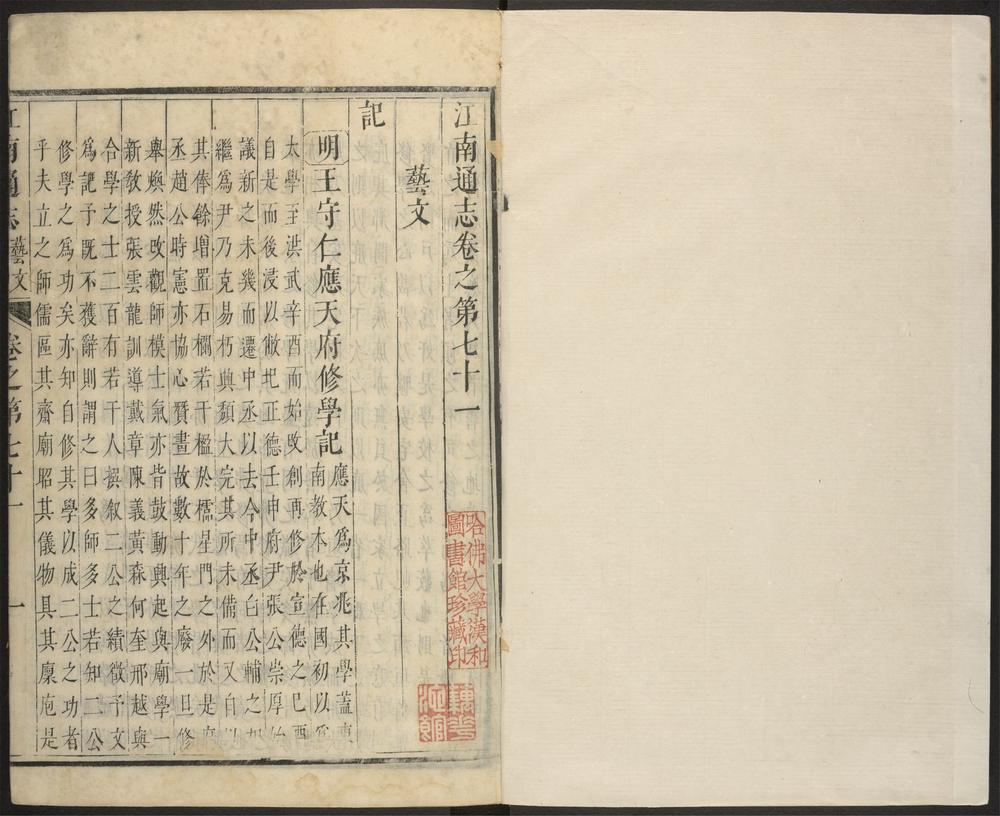 江南通志卷之第七十一
藝文
記
明王守仁應天府修學記
應天爲京兆其學蓋東
南教本也在國初以爲
太學至洪武辛酉而始改創再修於宣德之己酉
自是而後浸以敝圯正德壬申府尹張公崇厚始
議新之未幾而遷中丞以去今中丞白公輔之
繼爲尹乃克易朽興頽大完其所未備而又自以
其俸餘增置石欄若干楹於櫺星門之外於是府
丞趙公時憲亦協心贊畫故數十年之廢一旦修
舉煥然改觀師模士氣亦皆鼓動興起與廟學一
新教授張雲龍訓導戴章陳義黃森何奎邢越與
合學之士二百有若干人撰叙二公之績徵予文
爲記予既不獲辭則謂之曰多師多士若知二公
修學之爲功矣亦知自修其學以成二公之功者
乎夫立之師儒區其齋廟昭其儀物具其廩庖是
江南通志 藝文 卷之第七十一 一
哈佛大學漢和圖書館珍藏印